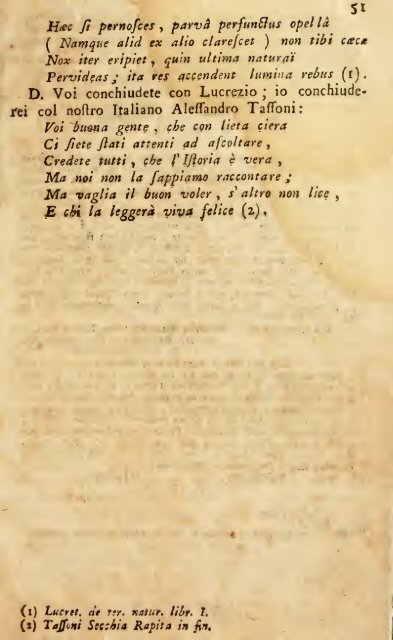 51
Hæc ſi pernoſces, parvâ perfunctus opellâ
( Namque alid ex alio clareſcet ) non tibi cæca
Nox iter eripiet, quin ultima naturaï
Pervideas; ita res accendent lumina rebus (1).
D. Voi conchiudete con Lucrezio; io conchiude-
rei col noſtro Italiano Aleſſandro Taſſoni:
Voi buona gente, che con lieta ciera
Ci ſiete ſtati attenti ad aſcoltare,
Credete tutti, che l'Iſtoria è vera,
Ma noi non la ſappiamo raccontare;
Ma vaglia il buon voler, s'altro non lice,
E chi la leggerà viva felice (2).
(1) Lucret. de rer. natur. libr. I.
(2) Taſſoni Secchia Rapita in fin.